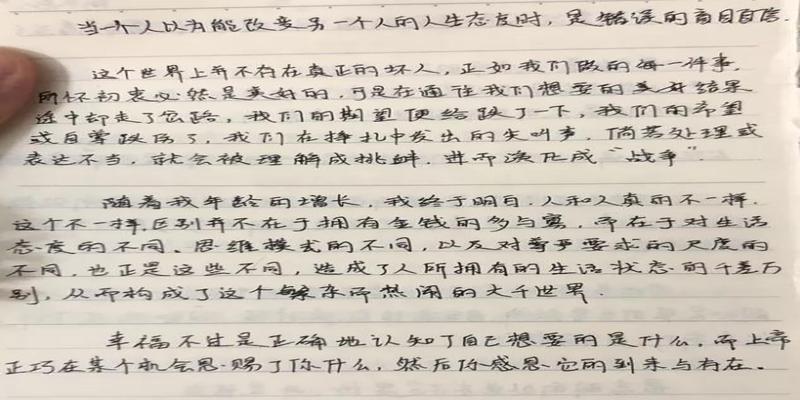 当一个人以为能改变另一个人的人生态度时,是错误的盲目自信.
这个世界上并不存在真正的坏人,正如我们做的每一件事,
所怀初衷必然是美好的,可是在通往我们想要的美好结果
途中却走了岔路,我们的期望便给跌了一下,我们的希望
或自尊跌伤了,我们在挣扎中发出的尖叫声,倘若处理或
表达不当,就会被理解成挑衅.进而演化成“战争”.
随着我年龄的增长,我终于明白,人和人真的不一样.
这个不一样,区别并不在于拥有金钱的多与寡,而在于对生活
态度的不同、思维模式的不同,以及对尊严要求的尺度的
不同,也正是这些不同,造成了人所拥有的生活状态的千差万
别,从而构成了这个繁杂而热闹的大千世界.
幸福不过是正确地认知了自己想要的是什么,而上帝
正巧在某个机会恩赐了你什么,然后你感恩它的到来与存在.